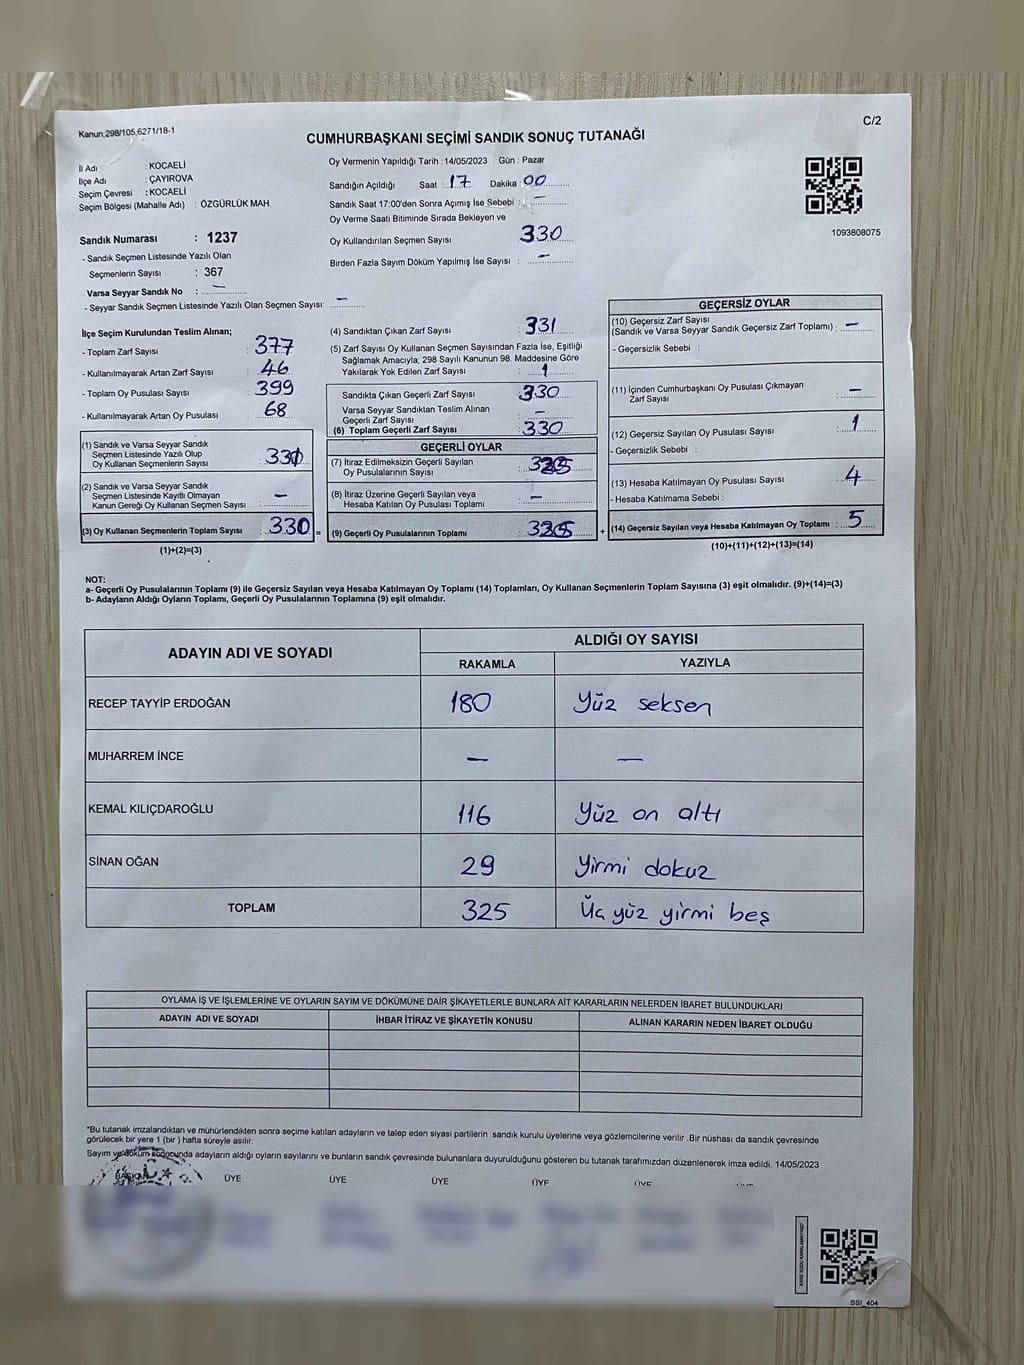 Kanun,298/105,6271/18-1
C/2
CUMHURBAŞKANI SEÇİMİ SANDIK SONUÇ TUTANAĞI
İl Adı : KOCAELİ
İlçe Adı : ÇAYIROVA
Seçim Çevresi : KOCAELİ
Seçim Bölgesi (Mahalle Adı) : ÖZGÜRLÜK MAH.
Oy Vermenin Yapıldığı Tarih : 14/05/2023 Gün : Pazar
Sandığın Açıldığı Saat : 17 Dakika : 00
Sandık Saat 17:00'den Sonra Açımış İse Sebebi : —
Oy Verme Saati Bitiminde Sırada Bekleyen ve
Oy Kullandırılan Seçmen Sayısı : 330
Birden Fazla Sayım Döküm Yapılmış İse Sayısı : —
1093808075
Sandık Numarası : 1237
- Sandık Seçmen Listesinde Yazılı Olan
Seçmenlerin Sayısı : 367
Varsa Seyyar Sandık No : —
- Seyyar Sandık Seçmen Listesinde Yazılı Olan Seçmen Sayısı: —
İlçe Seçim Kurulundan Teslim Alınan;
- Toplam Zarf Sayısı : 377
- Kullanılmayarak Artan Zarf Sayısı : 46
- Toplam Oy Pusulası Sayısı : 399
- Kullanılmayarak Artan Oy Pusulası : 68
(1) Sandık ve Varsa Seyyar Sandık
Seçmen Listesinde Yazılı Olup
Oy Kullanan Seçmenlerin Sayısı : 330
(2) Sandık ve Varsa Seyyar Sandık
Seçmen Listesinde Kayıtlı Olmayan
Kanun Gereği Oy Kullanan Seçmen Sayısı : —
(3) Oy Kullanan Seçmenlerin Toplam Sayısı : 330
(1)+(2)=(3)
(4) Sandıktan Çıkan Zarf Sayısı : 331
(5) Zarf Sayısı Oy Kullanan Seçmen Sayısından Fazla İse, Eşitliği
Sağlamak Amacıyla, 298 Sayılı Kanunun 98. Maddesine Göre
Yakılarak Yok Edilen Zarf Sayısı : 1
Sandıkta Çıkan Geçerli Zarf Sayısı : 330
Varsa Seyyar Sandıktan Teslim Alınan
Geçerli Zarf Sayısı : —
(6) Toplam Geçerli Zarf Sayısı : 330
GEÇERLİ OYLAR
(7) İtiraz Edilmeksizin Geçerli Sayılan
Oy Pusulalarının Sayısı : 325
(8) İtiraz Üzerine Geçerli Sayılan veya
Hesaba Katılan Oy Pusulası Toplamı : —
= (9) Geçerli Oy Pusulalarının Toplamı : 325 +
GEÇERSİZ OYLAR
(10) Geçersiz Zarf Sayısı
(Sandık ve Varsa Seyyar Sandık Geçersiz Zarf Toplamı) : —
- Geçersizlik Sebebi :
(11) İçinden Cumhurbaşkanı Oy Pusulası Çıkmayan
Zarf Sayısı : —
(12) Geçersiz Sayılan Oy Pusulası Sayısı : 1
- Geçersizlik Sebebi :
(13) Hesaba Katılmayan Oy Pusulası Sayısı : 4
- Hesaba Katılmama Sebebi :
(14) Geçersiz Sayılan veya Hesaba Katılmayan Oy Toplamı : 5
(10)+(11)+(12)+(13)=(14)
NOT:
a- Geçerli Oy Pusulalarının Toplamı (9) ile Geçersiz Sayılan veya Hesaba Katılmayan Oy Toplamı (14) Toplamları, Oy Kullanan Seçmenlerin Toplam Sayısına (3) eşit olmalıdır. (9)+(14)=(3)
b- Adayların Aldığı Oyların Toplamı, Geçerli Oy Pusulalarının Toplamına (9) eşit olmalıdır.
ADAYIN ADI VE SOYADI ALDIĞI OY SAYISI
RAKAMLA YAZIYLA
RECEP TAYYİP ERDOĞAN 180 Yüz seksen
MUHARREM İNCE — —
KEMAL KILIÇDAROĞLU 116 Yüz on altı
SİNAN OĞAN 29 Yirmi dokuz
TOPLAM 325 Üç yüz yirmi beş
OYLAMA İŞ VE İŞLEMLERİNE VE OYLARIN SAYIM VE DÖKÜMÜNE DAİR ŞİKAYETLERLE BUNLARA AİT KARARLARIN NELERDEN İBARET BULUNDUKLARI
ADAYIN ADI VE SOYADI İHBAR İTİRAZ VE ŞİKAYETİN KONUSU ALINAN KARARIN NEDEN İBARET OLDUĞU
*Bu tutanak imzalandıktan ve mühürlendikten sonra seçime katılan adayların ve talep eden siyasi partilerin sandık kurulu üyelerine veya gözlemcilerine verilir .Bir nüshası da sandık çevresinde
görülecek bir yere 1 (bir ) hafta süreyle asılır.
Sayım ve döküm sonucunda adayların aldığı oyların sayılarını ve bunların sandık çevresinde bulunanlara duyurulduğunu gösteren bu tutanak tarafımızdan düzenlenerek imza edildi. 14/05/2023
BAŞKAN ÜYE ÜYE ÜYE ÜYE ÜYE
SSI_404